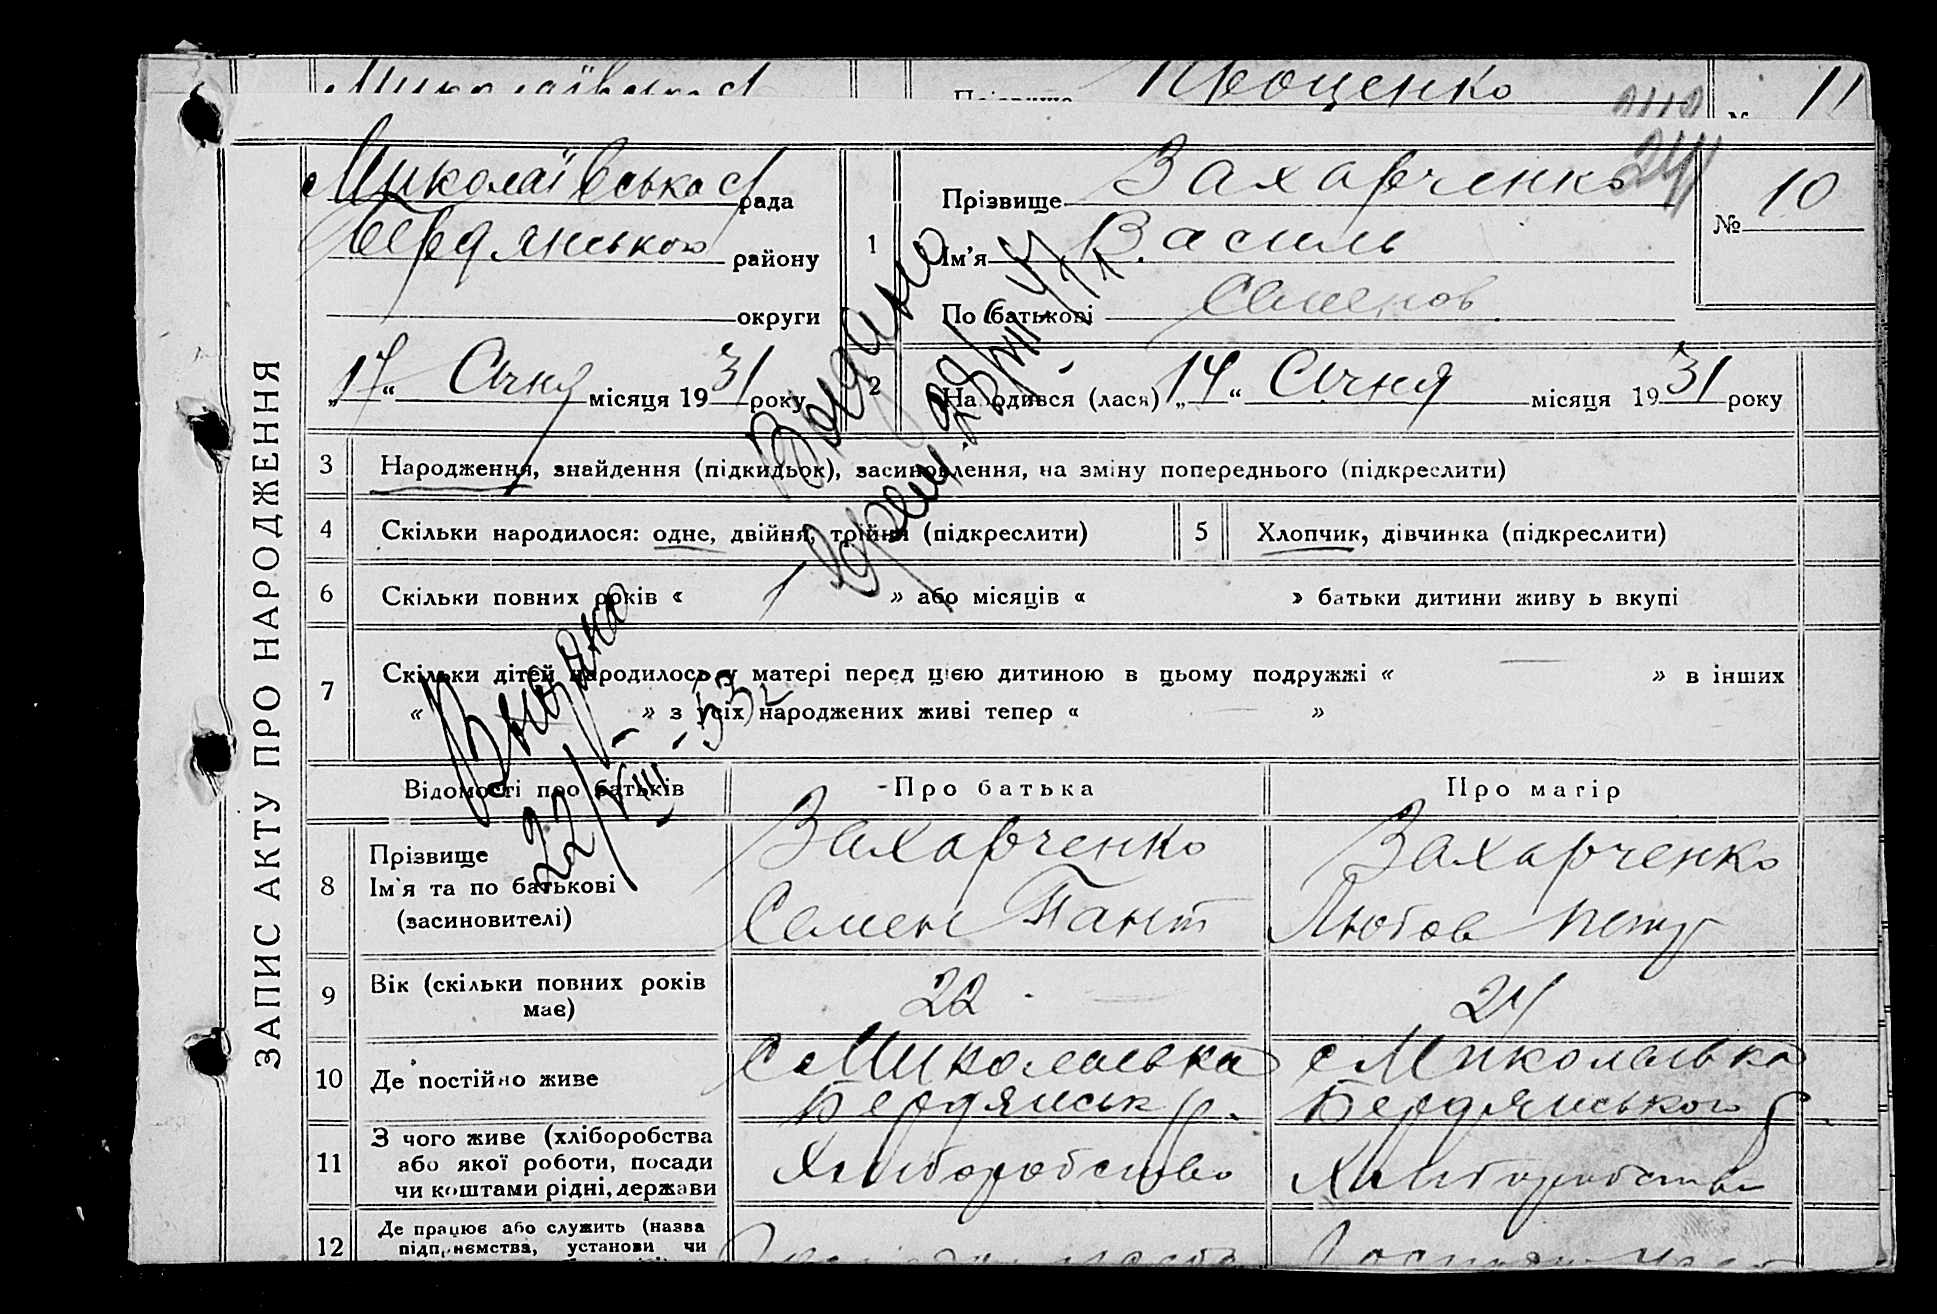 Миколаївська
Проценко
11
ЗАПИС АКТУ ПРО НАРОДЖЕННЯ
Миколаївська с/рада
Бердянського району
округи
1
Прізвище Захарченко
Ім'я Василь
По батькові Семенов
№ 10
„17“ Січня місяця 1931 року
2
Народився (лася) „14“ Січня місяця 1931 року
3 Народження, знайдення (підкидьок), засиновлення, на зміну попереднього (підкреслити)
4 Скільки народилося: одне, двійня, трійня (підкреслити)
5 Хлопчик, дівчинка (підкреслити)
6 Скільки повних років « 1 » або місяців « » батьки дитини живу ь вкупі
7 Скільки дітей народилось у матері перед цією дитиною в цьому подружжі « — » в інших
« — » з усіх народжених живі тепер « — »
Видано
Видана
22/VIII-53
Відомості про батьків
Про батька
Про матір
8 Прізвище
Ім'я та по батькові
(засиновителі)
Захарченко
Семен Пант
Захарченко
Любов Петр
9 Вік (скільки повних років має)
22
24
10 Де постійно живе
с Миколаевка
Бердянськ р.
с Миколаевка
Бердянського р
11 З чого живе (хліборобства
або якої роботи, посади
чи коштами рідні, держави
Хліборобство
Хліборобство
12 Де працює або служить (назва
підприємства, установи чи